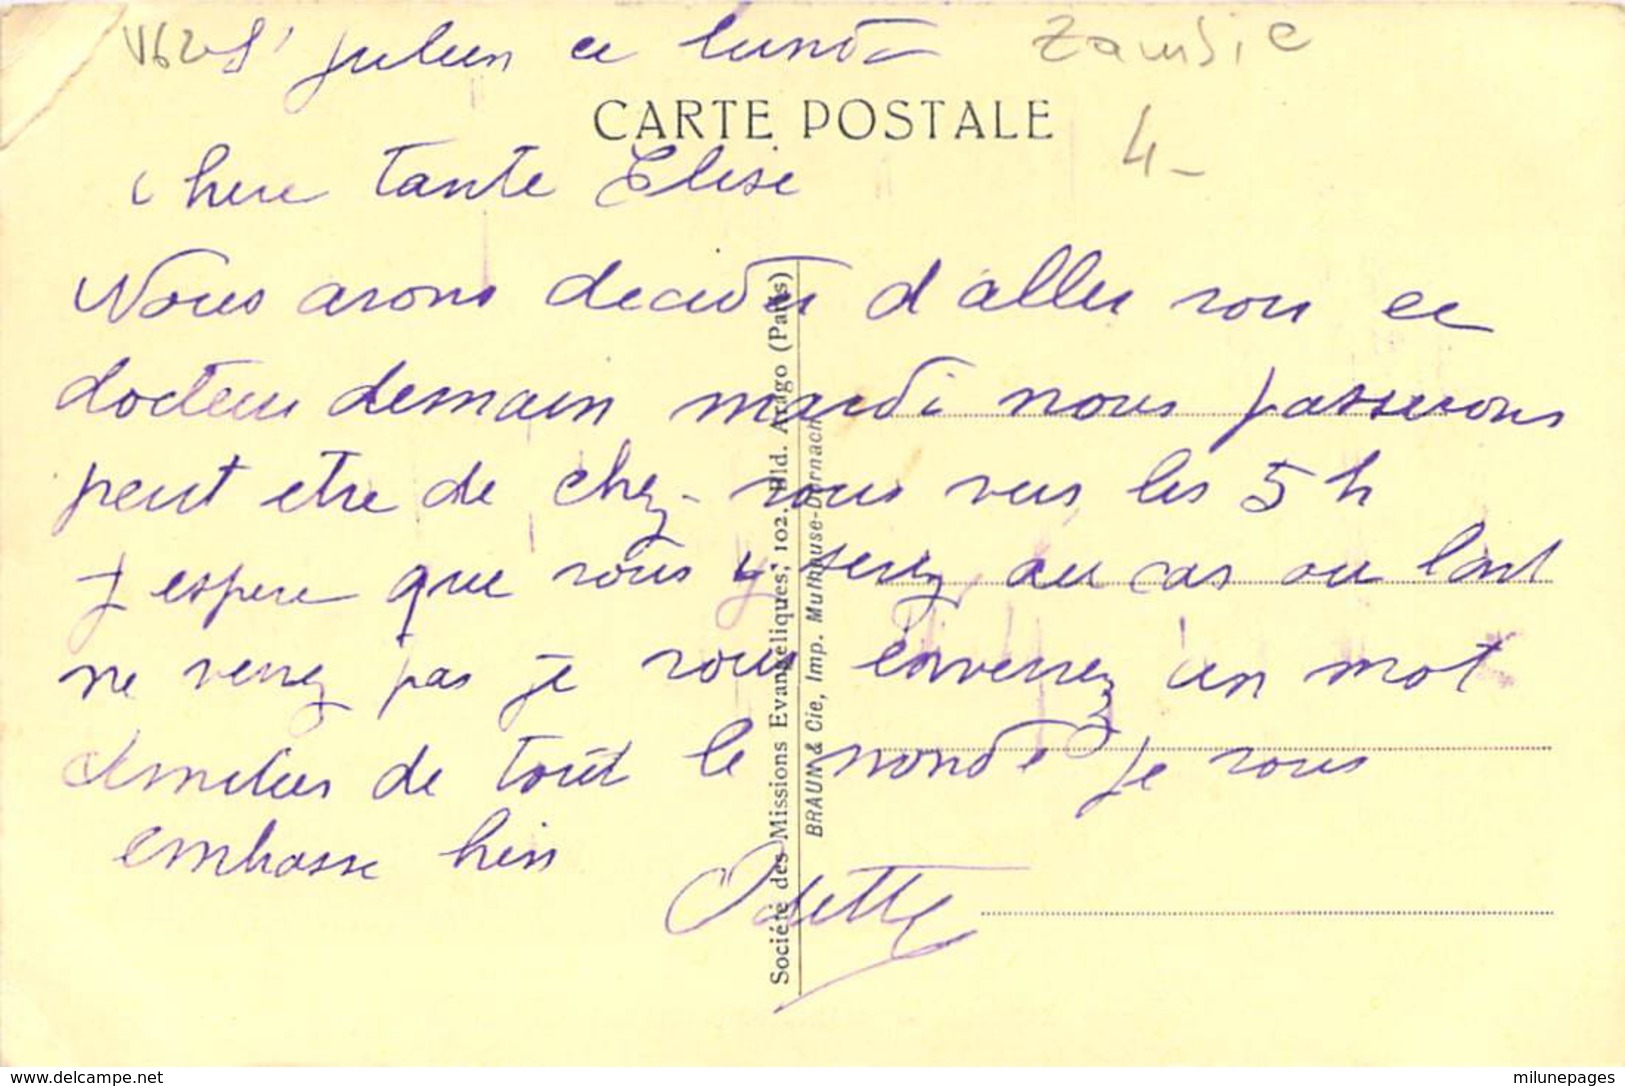 V62 St Julien ce lundi Zambie
CARTE POSTALE
4-
chere tante Elise
Nous avons decider d aller voir ce
docteur demain mardi nous passerons
peut etre de chez-vous vers les 5 h
J espere que vous y serez au cas ou l'ont
ne verrez pas je vous enverrez un mot
Amities de tout le monde je vous
embrasse bien
Odette
Société des Missions Evangéliques, 102. Bld. Arago (Paris)
BRAUN & Cie, Imp. Mulhouse-Dornach
www.delcampe.net
milunepages